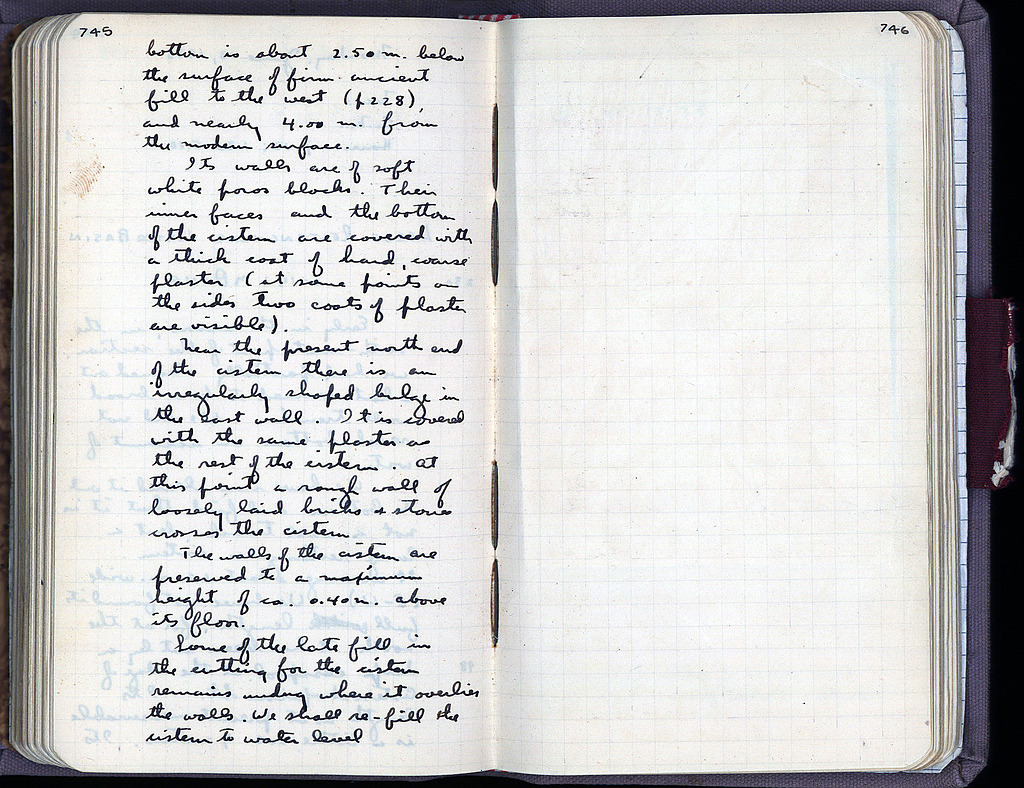 745
bottom is about 2.50 m. below
the surface of firm ancient
fill to the west (p228),
and nearly 4.00 m. from
the modern surface.
Its walls are of soft
white poros blocks. Their
inner faces and the bottom
of the cistern are covered with
a thick coat of hard, coarse
plaster (at some points on
the sides two coats of plaster
are visible).
Near the present north end
of the cistern there is an
irregularly shaped bulge in
the east wall. It is covered
with the same plaster as
the rest of the cistern. At
this point a rough wall of
loosely laid bricks + stones
crosses the cistern
The walls of the cistern are
preserved to a maximum
height of ca. 0.40 m. above
its floor.
Some of the late fill in
the cutting for the cistern
remains undug where it overlies
the walls. We shall re-fill the
cistern to water level
746